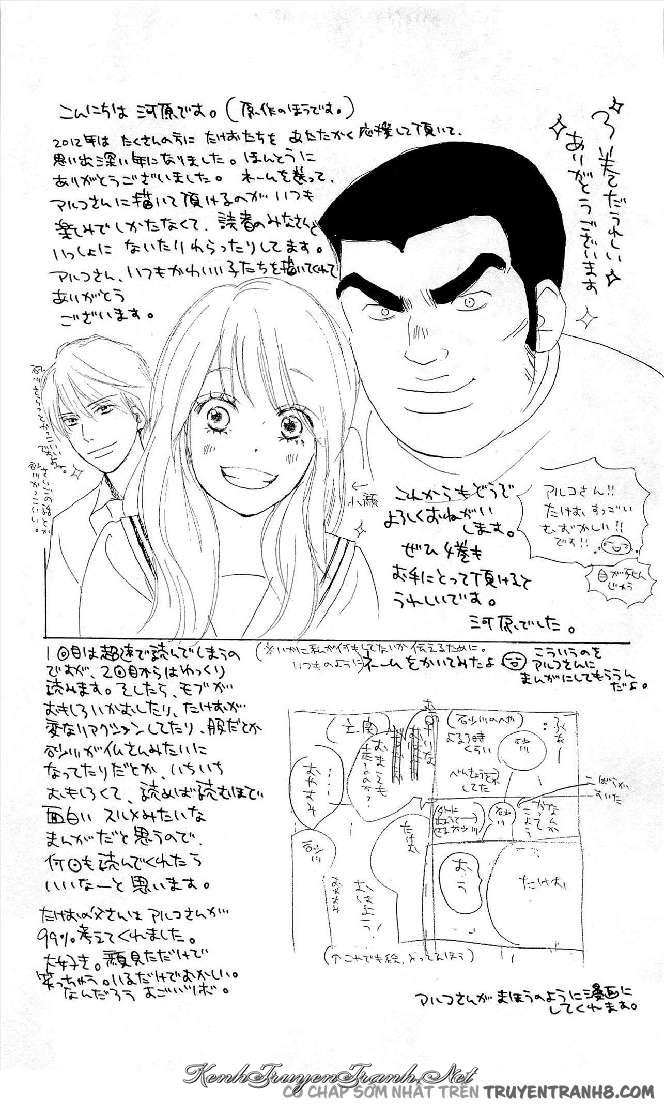 こんにちは 河原です。(原作のほうです。)
2012年は たくさんの方に たけおたちを あたたかく応援して頂いて、
思い出深い年になりました。ほんとうに
ありがとうございました。 ネームを送って、
アルコさんに描いて頂けるのがいつも
楽しみでしかたなくて、読者のみなさんと
いっしょに ないたりわらったりしてます。
アルコさん、いつもかわいい子たちを描いてくれて
ありがとう
ございます。
うれしい
ありがとうございます
←小瀬
これからもどうぞ
よろしくおねがい
します。
ぜひ 4巻も
お手にとって頂けると
うれしいです。
河原でした。
アルコさん!!
たけお すっごい
むずかしい!!
です!!
1回目は超速で読んでしまうの
ですが、2回目からはゆっくり
読みます。そしたら、モブが
おもしろいかおしたり、たけおが
変なリアクションしてたり、服だとか
砂川が仏さんみたいに
なってたりだとか、いちいち
おもしろくて、読めば読むほど
面白い スルメみたいな
まんがだと思うので、
何回も読んでくれたら
いいなーと思います。
たけおの父さんを アルコさんが
99%考えてくれました。
大好き。顔見ただけで
笑っちゃう。いるだけでおかしい。
なんだろう すごいなぁ。
いつものように ネームをかいてみたよ
こういうのを
アルコさんに
まんがにしてもらうん
だよ。
砂川のへや
よる7時
くらい
砂川
べんきょうを
してた
たけお
おう
おまえも
おはよう!
砂川
アルコさんが まほうのように漫画に
してくれます。
KenhTruyenTranh.Net
CÓ CHAP SỚM NHẤT TRÊN TRUYENTRANH8.COM